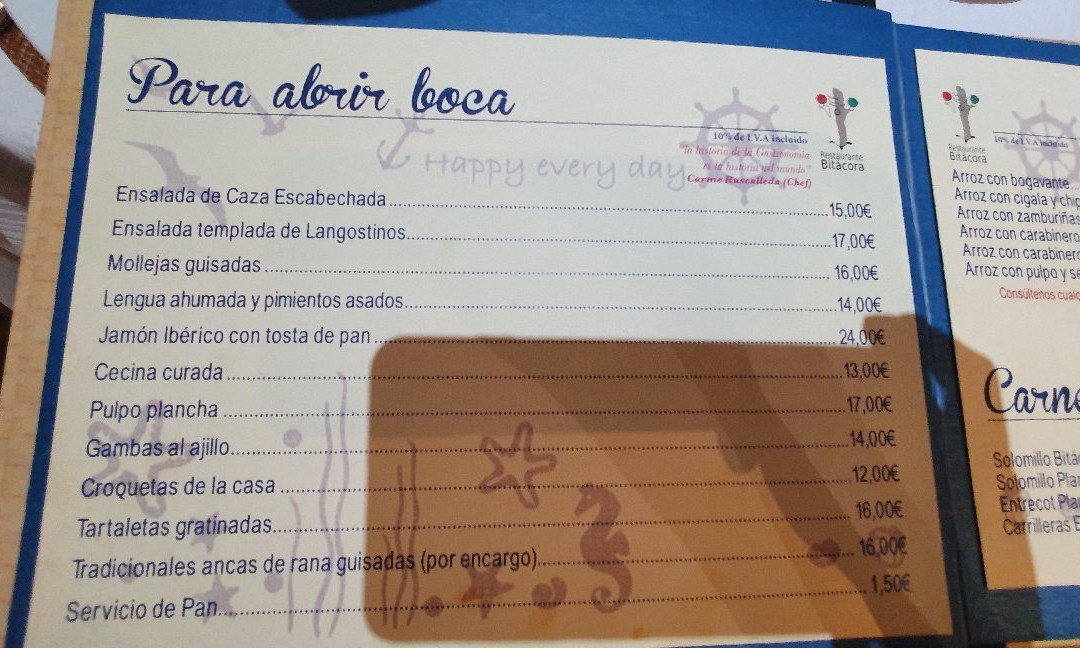 Para abrir boca
10% de I.V.A incluido
"la historia de la Gastronomía
es la historia del mundo"
Carme Ruscalleda (Chef)
Restaurante
Bitácora
Happy every day
Ensalada de Caza Escabechada 15,00€
Ensalada templada de Langostinos 17,00€
Mollejas guisadas 16,00€
Lengua ahumada y pimientos asados 14,00€
Jamón Ibérico con tosta de pan 24,00€
Cecina curada 13,00€
Pulpo plancha 17,00€
Gambas al ajillo 14,00€
Croquetas de la casa 12,00€
Tartaletas gratinadas 16,00€
Tradicionales ancas de rana guisadas (por encargo) 16,00€
Servicio de Pan 1,50€
Restaurante
Bitácora
10% de I.V.A incluido
Arroz con bogavante
Arroz con cigala y chip
Arroz con zamburiñas
Arroz con carabinero
Arroz con carabinero
Arroz con pulpo y se
Consúltenos cualq
Carne
Solomillo Bitá
Solomillo Pla
Entrecot Pla
Carrilleras E